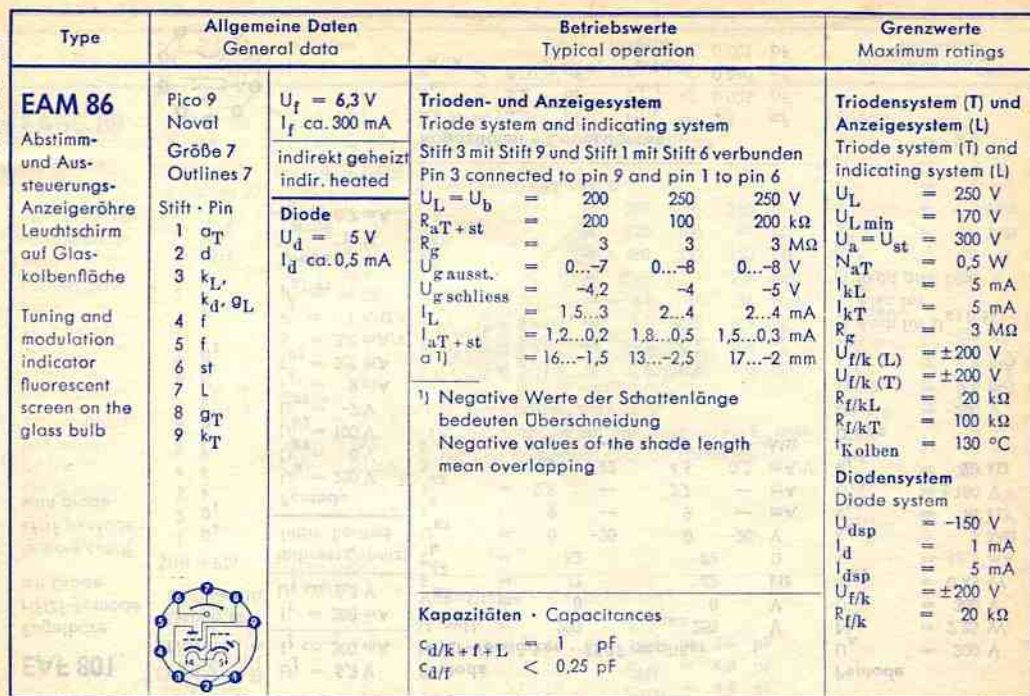 Type
Allgemeine Daten
General data
Betriebswerte
Typical operation
Grenzwerte
Maximum ratings
EAM 86
Abstimm-
und Aus-
steuerungs-
Anzeigeröhre
Leuchtschirm
auf Glas-
kolbenfläche
Tuning and
modulation
indicator
fluorescent
screen on the
glass bulb
Pico 9
Noval
Größe 7
Outlines 7
Stift · Pin
1 aT
2 d
3 kL,
kd, gL
4 f
5 f
6 st
7 L
8 gT
9 kT
Uf = 6,3 V
If ca. 300 mA
indirekt geheizt
indir. heated
Diode
Ud = 5 V
Id ca. 0,5 mA
Trioden- und Anzeigesystem
Triode system and indicating system
Stift 3 mit Stift 9 und Stift 1 mit Stift 6 verbunden
Pin 3 connected to pin 9 and pin 1 to pin 6
UL = Ub = 200 250 250 V
RaT + st = 200 100 200 kΩ
Rg = 3 3 3 MΩ
Ug ausst. = 0...–7 0...–8 0...–8 V
Ug schliess = –4,2 –4 –5 V
IL = 1,5...3 2...4 2...4 mA
IaT + st = 1,2...0,2 1,8...0,5 1,5...0,3 mA
a 1) = 16...–1,5 13...–2,5 17...–2 mm
1) Negative Werte der Schattenlänge
bedeuten Überschneidung
Negative values of the shade length
mean overlapping
Kapazitäten · Capacitances
cd/k + f + L = 1 pF
cd/f < 0,25 pF
Triodensystem (T) und
Anzeigesystem (L)
Triode system (T) and
indicating system (L)
UL = 250 V
UL min = 170 V
Ua = Ust = 300 V
NaT = 0,5 W
IkL = 5 mA
IkT = 5 mA
Rg = 3 MΩ
Uf/k (L) = ±200 V
Uf/k (T) = ±200 V
Rf/kL = 20 kΩ
Rf/kT = 100 kΩ
tKolben = 130 °C
Diodensystem
Diode system
Udsp = –150 V
Id = 1 mA
Idsp = 5 mA
Uf/k = ±200 V
Rf/k = 20 kΩ